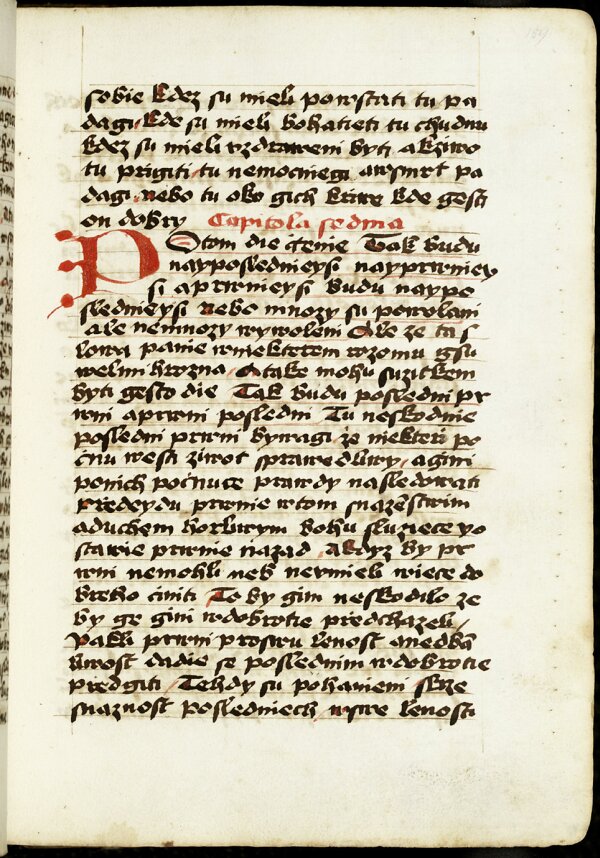 sobie kdez su mieli powstati tu pa
dagi kde su mieli bohatieti tu chudnu
kdez su mieli vzdraweni byti a k ziwo
tu prigiti tu nemocniegi awsmrt pa
dagi nebo tu oko gich kriwe kde gest
on dobry Capitola sedma
Potom die ctenie Tak budu
nayposlednieysi nayprwniey
si aprwnieysi budu naypo
slednieysi nebo mnozy su powolani
ale nemnozy wywoleni Ale ze ta s
lowa panie wniekterem rozomu gsu
welmi hrozna Atake mohu suzitkem
byti gesto die Tak budu posledni pr
wni aprwni posledni Tu neskodnie
posledni prwni bywagi ze niekteri po
cnu westi ziwot sprawedliwy agini
ponich pocnuce prawdy nasledowati
predeydu prwnie wtom snazenstwim
aduchem horliwym bohu sluziece po
stawie prwnie nazad Akdyz by pr
wni nemohli neb neumieli wiece do
breho ciniti To by gim neskodilo ze
by ge gini wdobrotie predchazeli
Pakli prwni prosru lenost anedba
liwost dadie se poslednim wdobrotie
predgiti Tehdy su pohaniem skrze
snaznost posledniech wswe lenosti